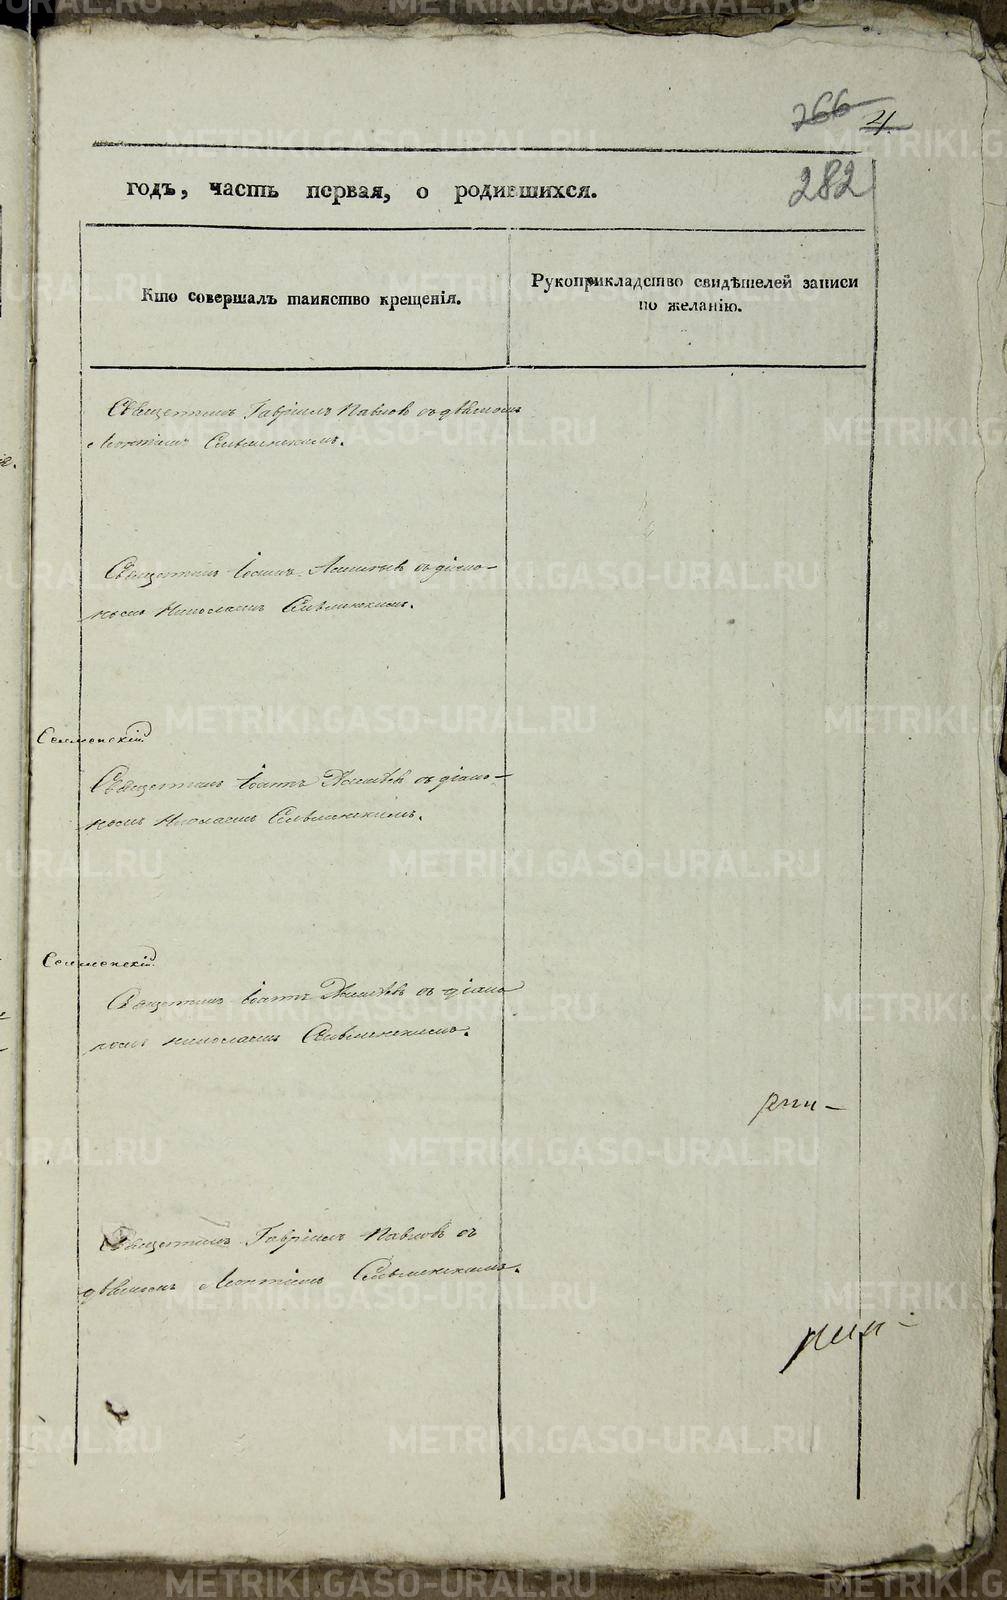 266 4.
282
годъ, часть первая, о родившихся.
Кто совершалъ таинство крещенія.
Рукоприкладство свидѣтелей записи
по желанію.
Священникъ Гавріилъ Павловъ съ дьякономъ
Леонтіемъ Сельменскимъ.
Священникъ Іоаннъ съ діако-
номъ Николаемъ Сельменскимъ.
Священникъ Іоаннъ съ діако-
номъ Николаемъ Сельменскимъ.
Священникъ Іоаннъ съ діако
номъ Николаемъ Сельменскимъ.
Священникъ Гавріилъ Павловъ съ
дьякономъ Леонтіемъ Сельменскимъ.
METRIKI.GASO-URAL.RU